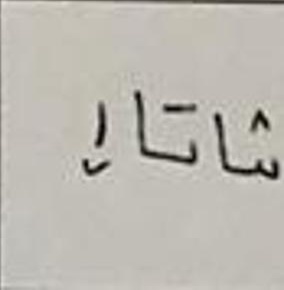 شاتاإ